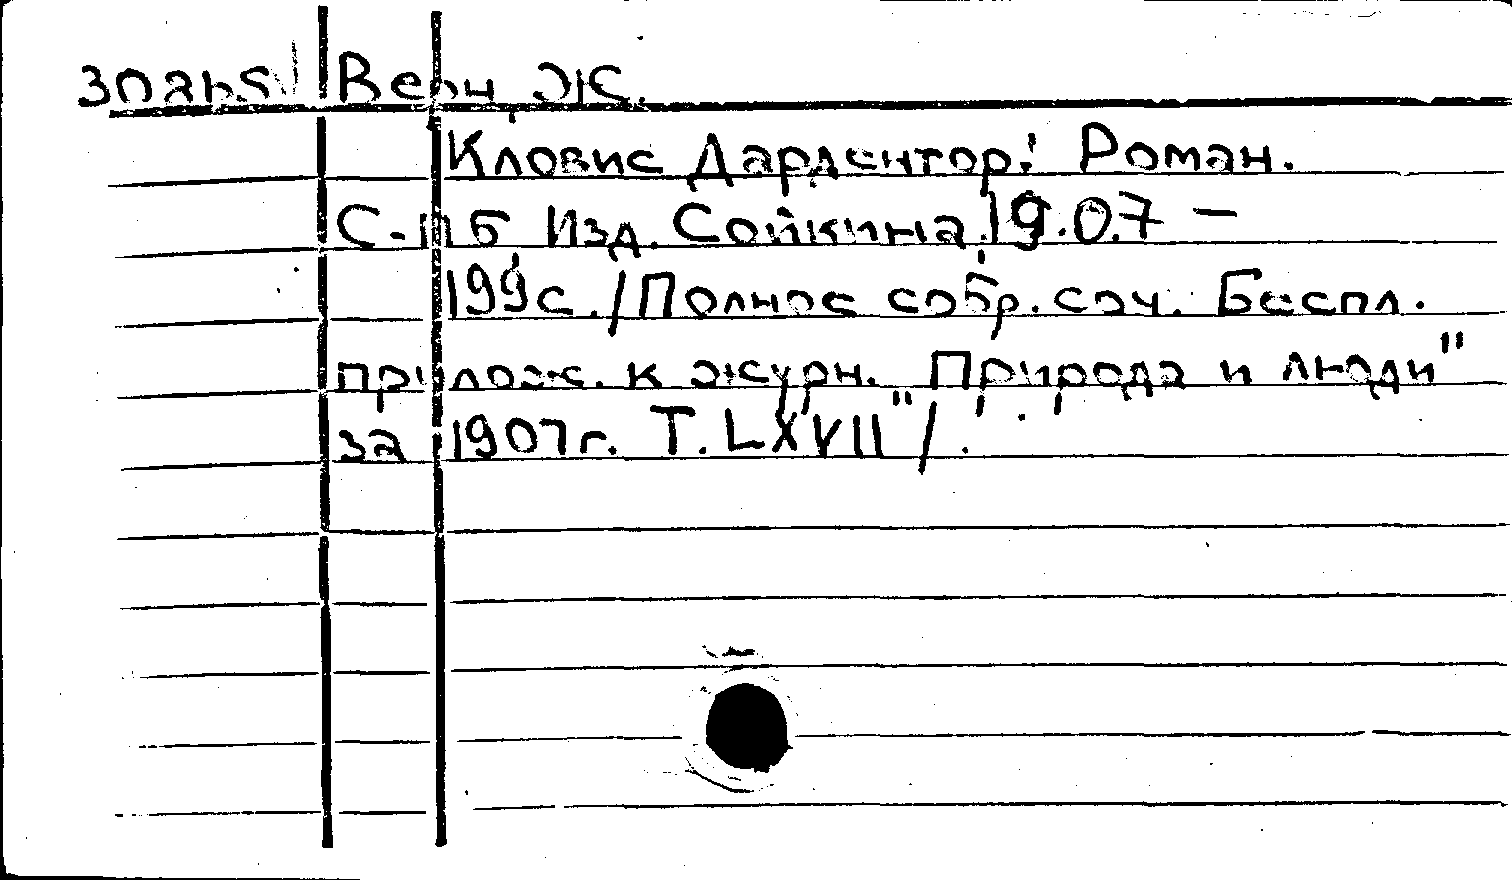 Верн, Ж.
Кловис Дардентор: Роман.
С-ПБ, Изд. Сойкина, 19.07 —
199с. /Полное собр. соч. Беспл.
прилож. к журн. "Природа и люди"
за 1907г. Т. LXVII"/.